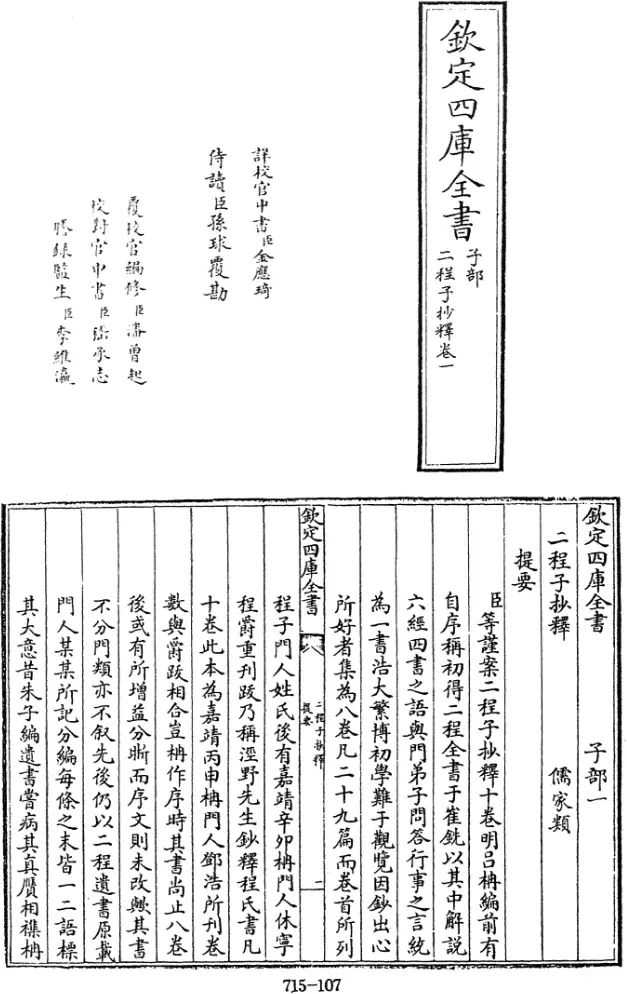 欽定四庫全書
子部
二程子抄釋卷一
詳校官中書臣金應琦
侍讀臣孫球覆勘
覆校官編修臣潘曾起
校對官中書臣張承志
謄錄監生臣李維瀛
欽定四庫全書 子部一
二程子抄釋 儒家類
提要
臣等謹案二程子抄釋十卷明呂柟編前有
自序稱初得二程全書于崔銑以其中解說
六經四書之語與門弟子問答行事之言統
為一書浩大繁博初學難于觀覽因鈔出心
所好者集為八卷凡二十九篇而卷首所列
欽定四庫全書
二程子抄釋
提要
一
程子門人姓氏後有嘉靖辛卯柟門人休寧
程爵重刊跋乃稱涇野先生鈔釋程氏書凡
十卷此本為嘉靖丙申柟門人鄧浩所刊卷
數與爵跋相合豈柟作序時其書尚止八卷
後或有所增益分斷而序文則未改歟其書
不分門類亦不叙先後仍以二程遺書原載
門人某某所記分編每條之末皆一二語標
其大意昔朱子編遺書嘗病其真贋相襍柟
715-107